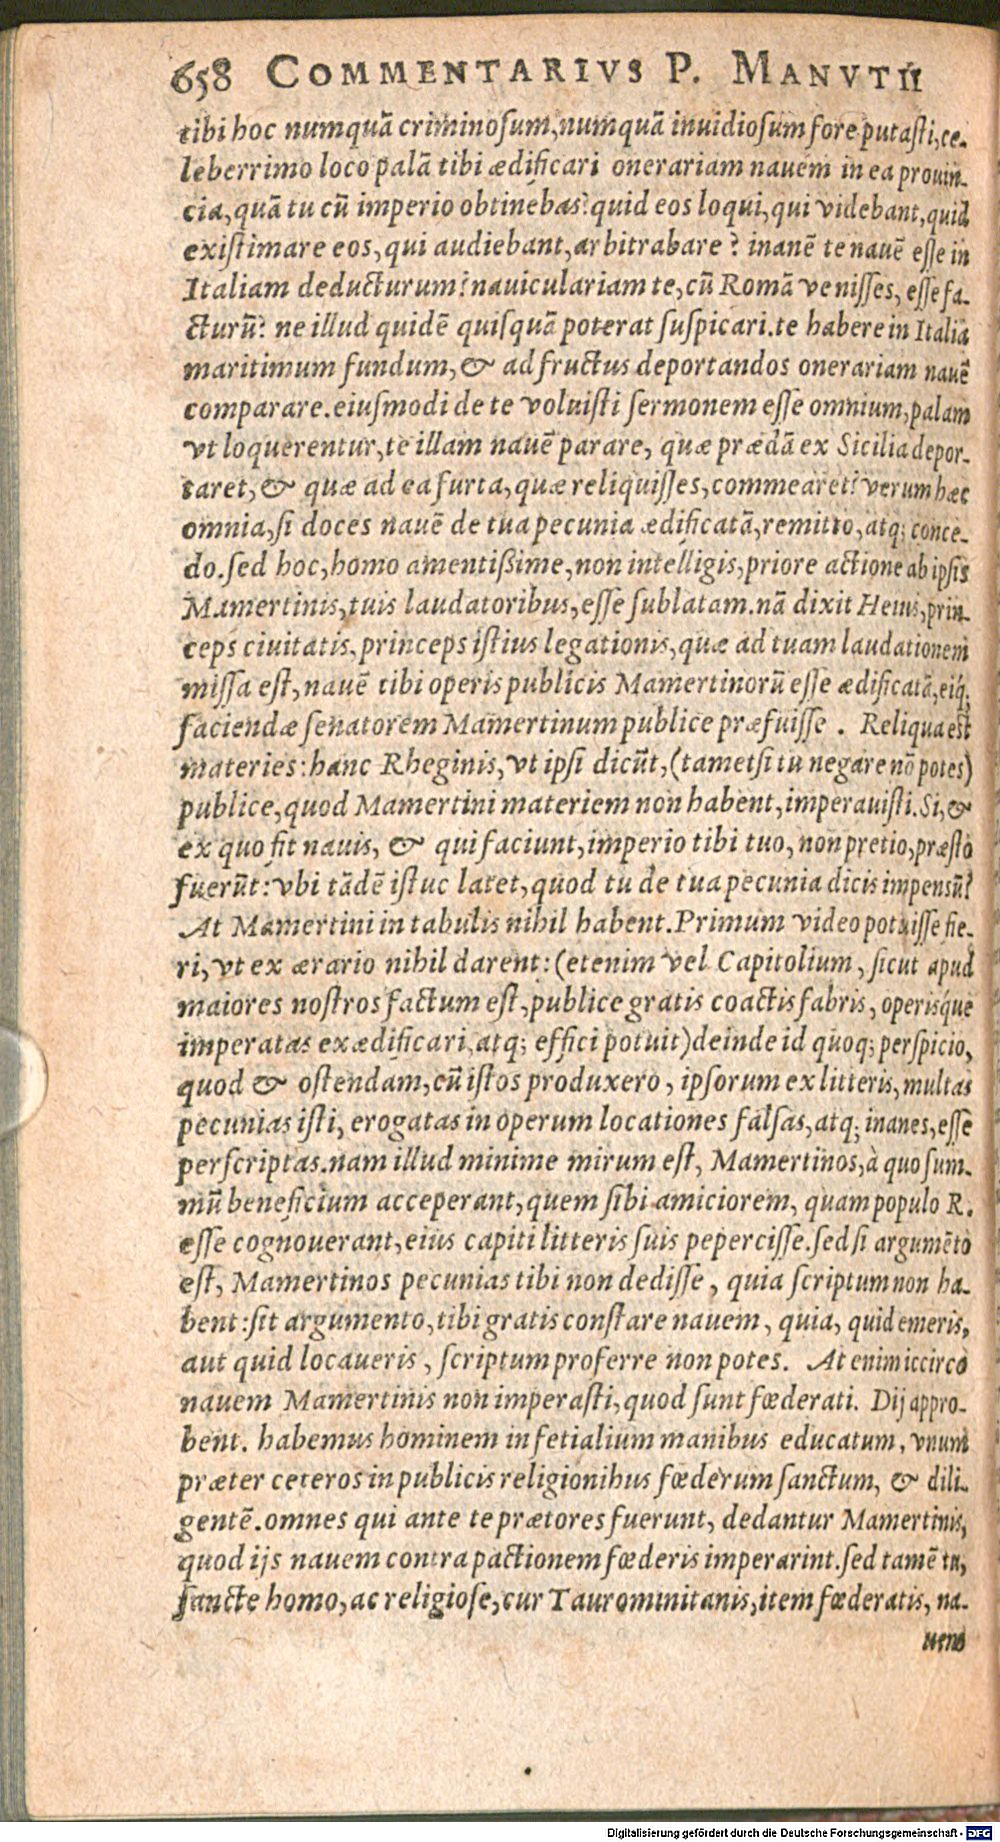 658 COMMENTARIVS P. MANVTII
tibi hoc numquā criminosum, numquā inuidiosum fore putasti, ce-
leberrimo loco palā tibi ædificari onerariam nauem in ea prouin-
cia, quā tu cū imperio obtinebas? quid eos loqui, qui videbant, quid
existimare eos, qui audiebant, arbitrabare? inanē te nauē esse in
Italiam deducturum? nauiculariam te, cū Romā venisses, esse fa-
cturū? ne illud quidē quisquā poterat suspicari. te habere in Italia
maritimum fundum, & ad fructus deportandos onerariam nauē
comparare. eiusmodi de te voluisti sermonem esse omnium, palam
vt loquerentur, te illam nauē parare, quæ prædā ex Sicilia depor-
taret, & quæ ad ea furta, quæ reliquisses, commearet? verum hæc
omnia, si doces nauē de tua pecunia ædificatā, remitto, atq; conce-
do. sed hoc, homo amentißime, non intelligis, priore actione ab ipsis
Mamertinis, tuis laudatoribus, esse sublatam. nā dixit Heius, prin-
ceps ciuitatis, princeps istius legationis, quæ ad tuam laudationem
missa est, nauē tibi operis publicis Mamertinorū esse ædificatā, eiq́;
faciendæ senatorem Mamertinum publice præfuisse. Reliqua est
materies: hanc Rheginis, vt ipsi dicūt, (tametsi tu negare nō potes)
publice, quod Mamertini materiem non habent, imperauisti. Si, &
ex quo fit nauis, & qui faciunt, imperio tibi tuo, non pretio, præsto
fuerūt: vbi tādē istuc latet, quod tu de tua pecunia dicis impensū?
At Mamertini in tabulis nihil habent. Primum video potuisse fie-
ri, vt ex ærario nihil darent: (etenim vel Capitolium, sicut apud
maiores nostros factum est, publice gratis coactis fabris, operisque
imperatas exædificari, atq; effici potuit) deinde id quoq; perspicio,
quod & ostendam, cū istos produxero, ipsorum ex litteris, multas
pecunias isti, erogatas in operum locationes falsas, atq; inanes, esse
perscriptas. nam illud minime mirum est, Mamertinos, à quo sum-
mū beneficium acceperant, quem sibi amiciorem, quam populo R.
esse cognouerant, eius capiti litteris suis pepercisse. sed si argumēto
est, Mamertinos pecunias tibi non dedisse, quia scriptum non ha-
bent: sit argumento, tibi gratis constare nauem, quia, quid emeris,
aut quid locaueris, scriptum proferre non potes. At enim iccirco
nauem Mamertinis non imperasti, quod sunt fœderati. Dij appro-
bent. habemus hominem in fetialium manibus educatum, vnum
præter ceteros in publicis religionibus fœderum sanctum, & dili-
gentē. omnes qui ante te prætores fuerunt, dedantur Mamertinis,
quod ijs nauem contra pactionem fœderis imperarint. sed tamē tu,
sancte homo, ac religiose, cur Taurominitanis, item fœderatis, na-
uem
Digitalisierung gefördert durch die Deutsche Forschungsgemeinschaft - DFG